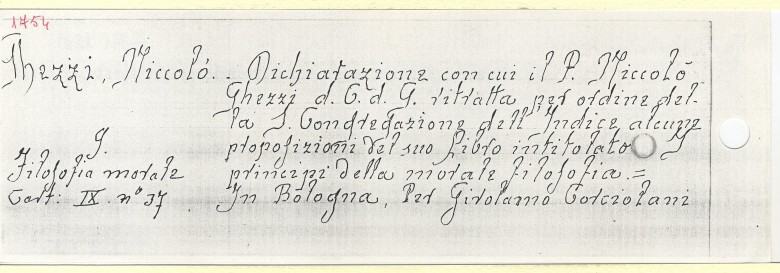 1754
Ghezzi, Niccoló.. Dichiarazione con cui il P. Niccolò
Ghezzi d. C. d. G. ritratta per ordine del-
la S. Congregazione dell'Indice alcune
G. proposizioni del suo libro intitolato I
Filosofia morale principi della morale filosofia.=
Cart. IX. nº 37 In Bologna, Per Girolamo Corciolani